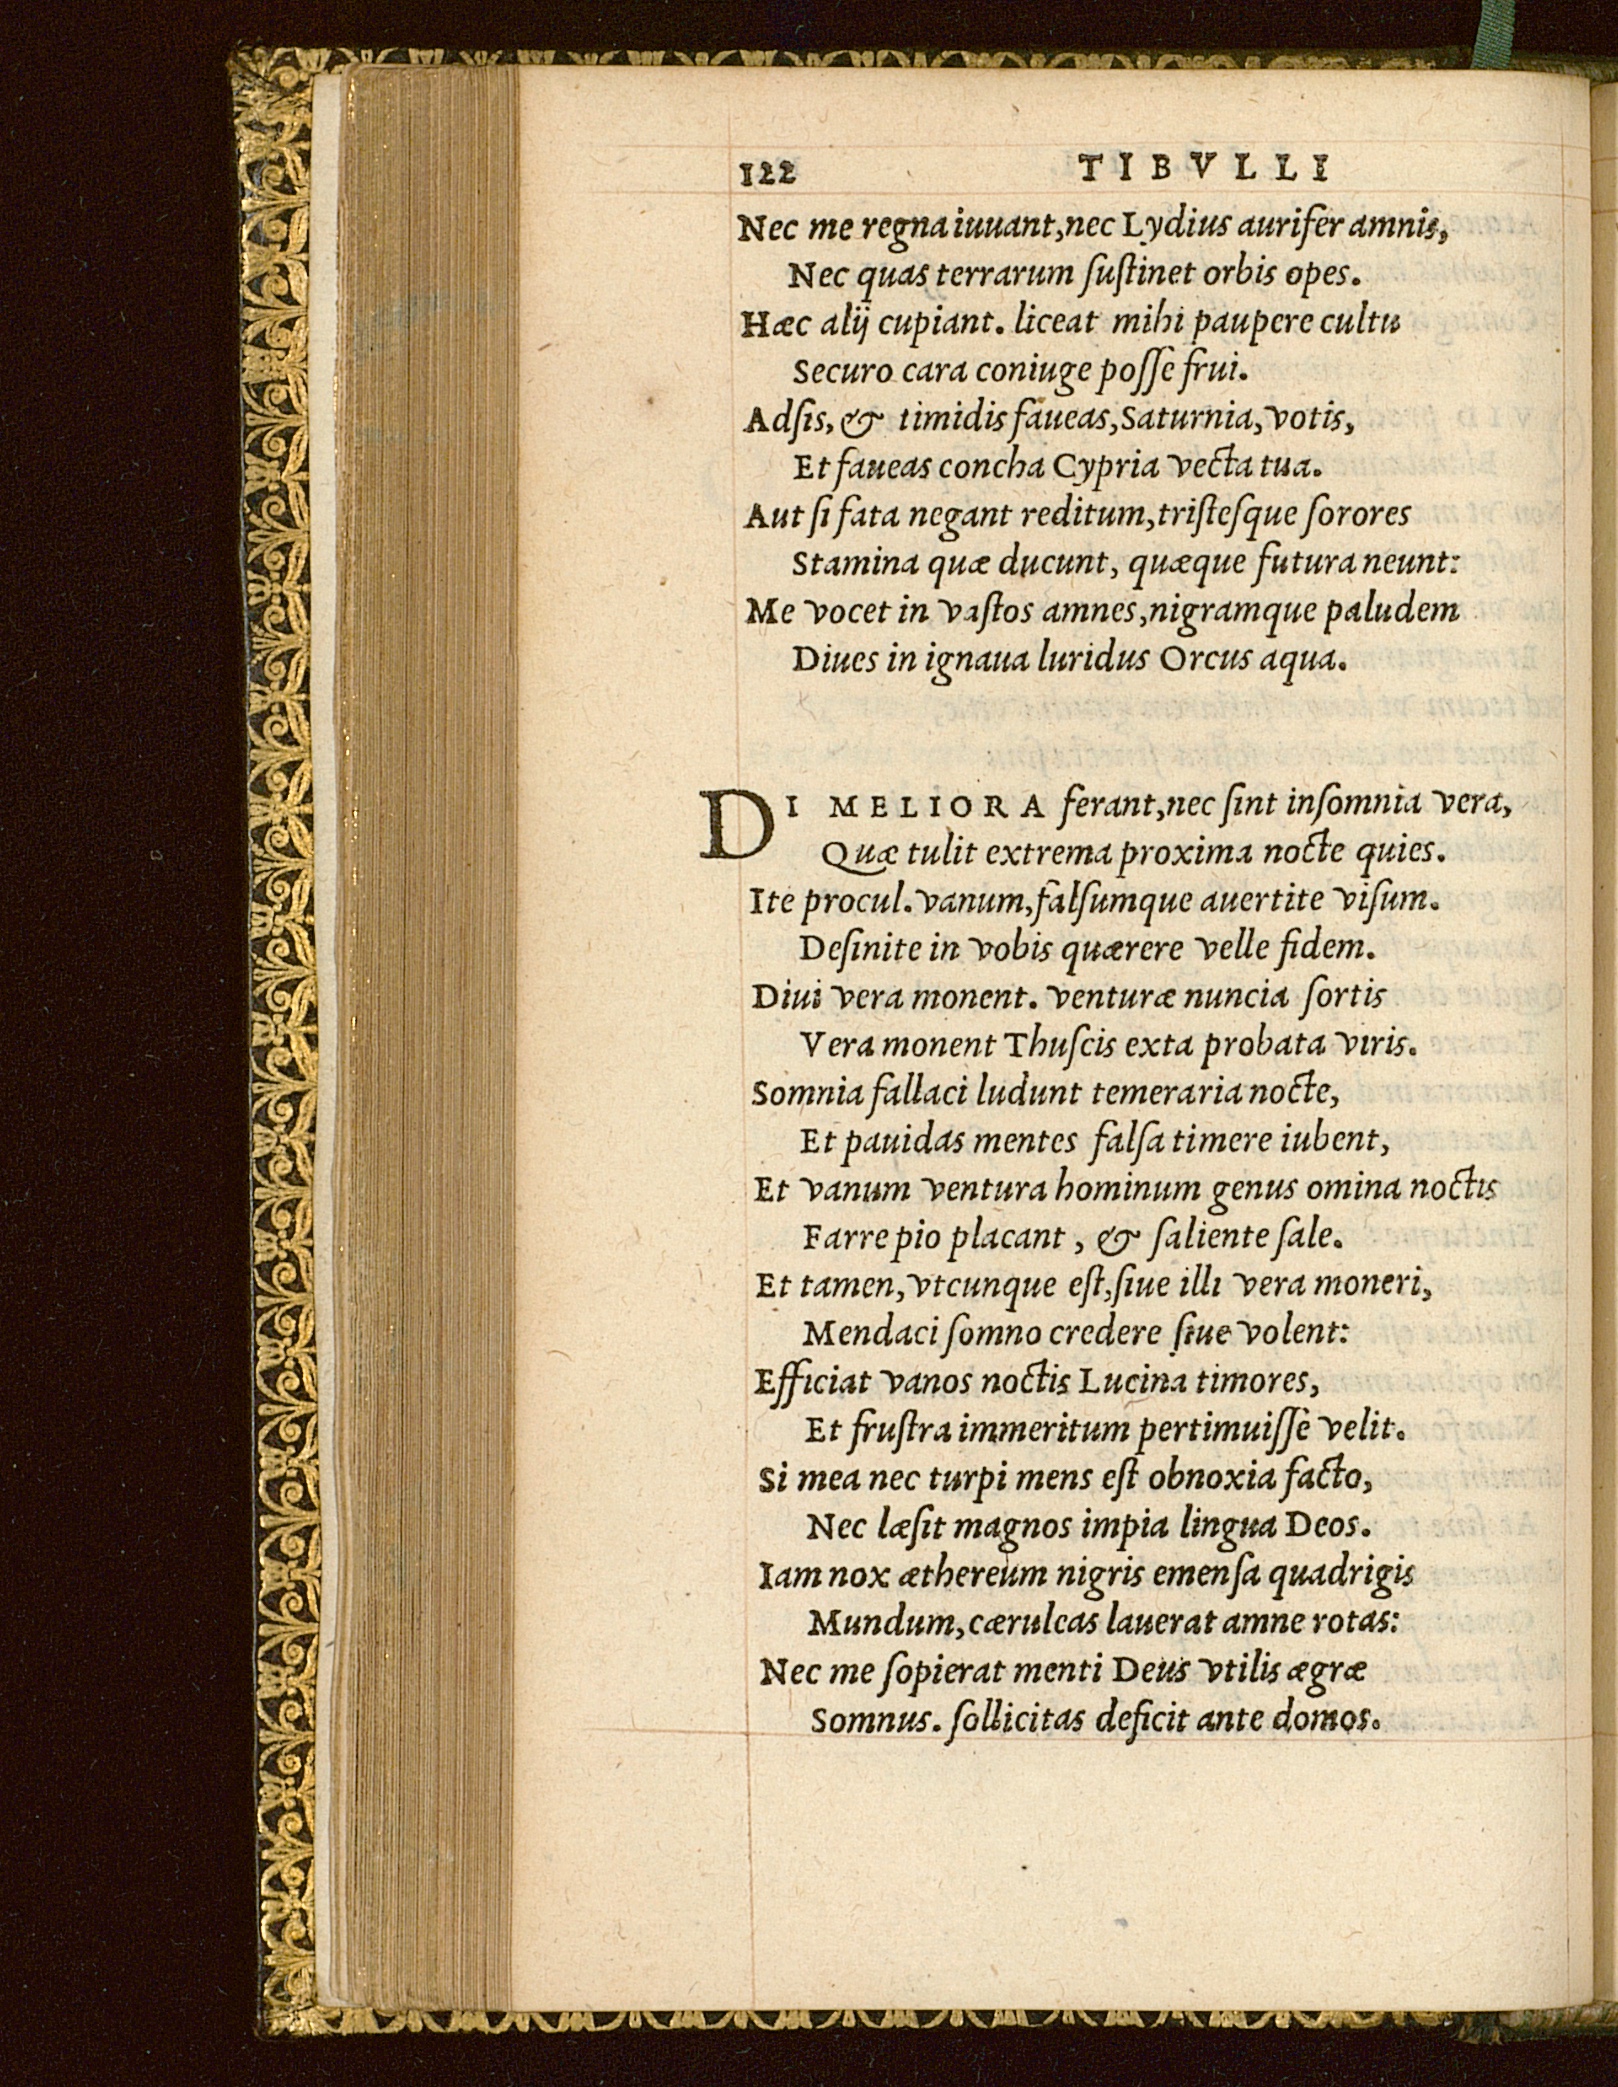 122 TIBVLLI
Nec me regna iuuant,nec Lydius aurifer amnis,
Nec quas terrarum ſuſtinet orbis opes.
Hæc alij cupiant. liceat mihi paupere cultu
Securo cara coniuge poſſe frui.
Adſis, & timidis faueas,Saturnia, votis,
Et faueas concha Cypria vecta tua.
Aut ſi fata negant reditum,triſteſque ſorores
Stamina quæ ducunt, quæque futura neunt:
Me vocet in vaſtos amnes,nigramque paludem
Diues in ignaua luridus Orcus aqua.
DI MELIORA ferant,nec ſint inſomnia vera,
Quæ tulit extrema proxima nocte quies.
Ite procul. vanum,falſumque auertite viſum.
Deſinite in vobis quærere velle fidem.
Diui vera monent. venturæ nuncia ſortis
Vera monent Thuſcis exta probata viris.
Somnia fallaci ludunt temeraria nocte,
Et pauidas mentes falſa timere iubent,
Et vanum ventura hominum genus omina noctis
Farre pio placant, & ſaliente ſale.
Et tamen, vtcunque eſt,ſiue illi vera moneri,
Mendaci ſomno credere ſiue volent:
Efficiat vanos noctis Lucina timores,
Et fruſtra immeritum pertimuiſſe velit.
Si mea nec turpi mens eſt obnoxia facto,
Nec læſit magnos impia lingua Deos.
Iam nox æthereum nigris emenſa quadrigis
Mundum,cæruleas lauerat amne rotas:
Nec me ſopierat menti Deus vtilis ægræ
Somnus. ſollicitas deficit ante domos.